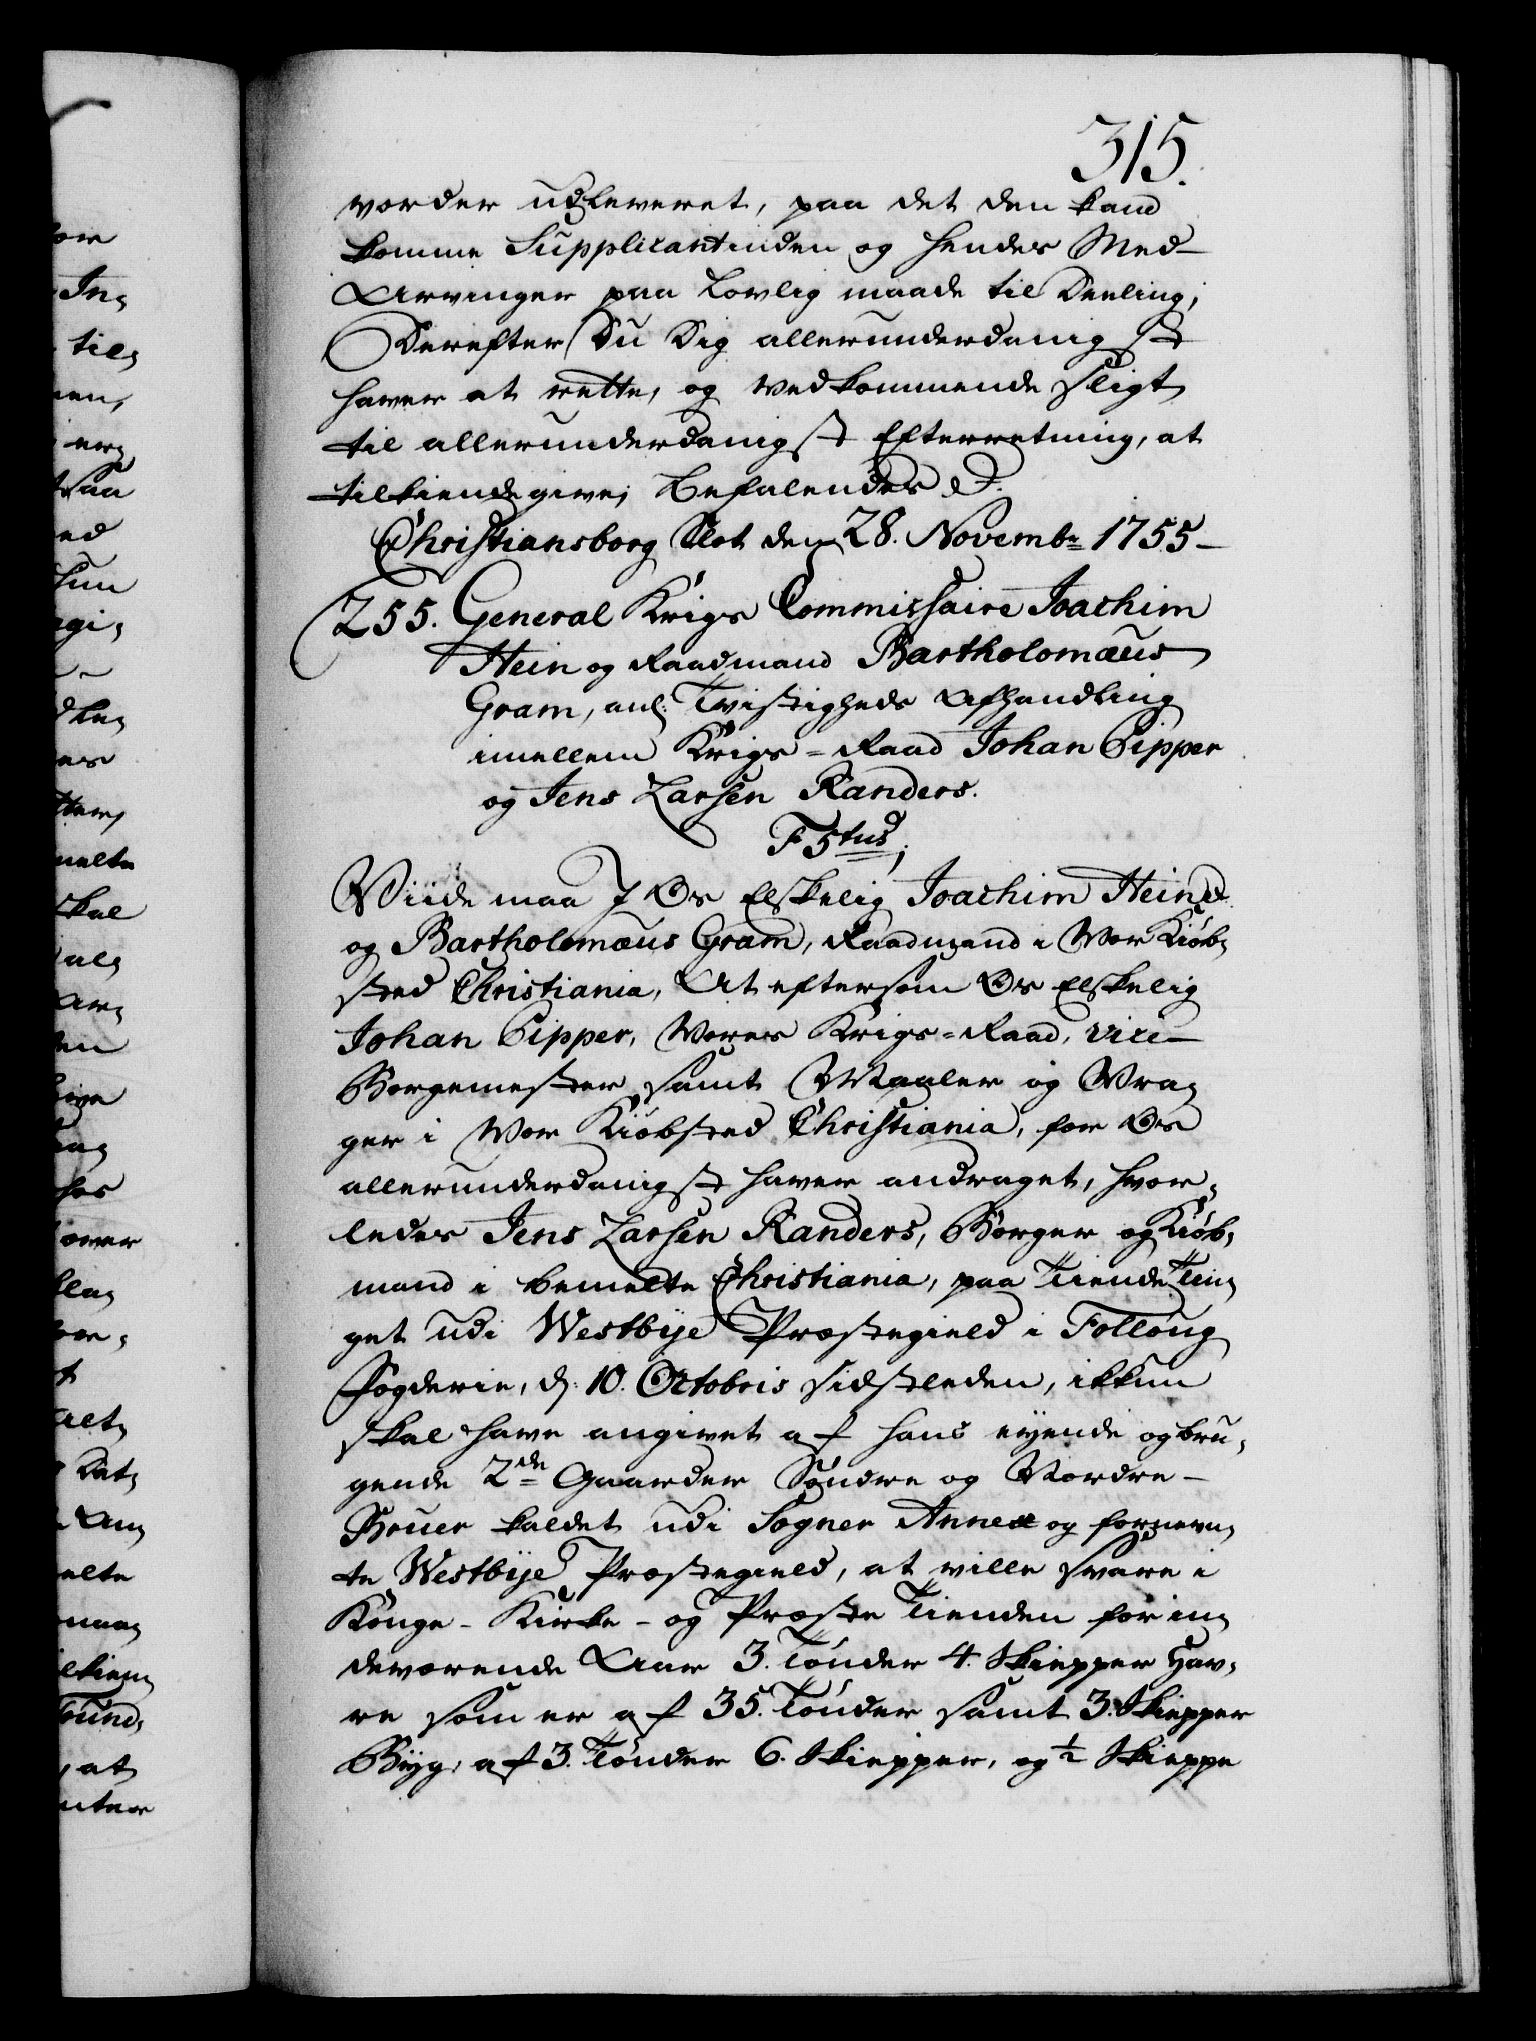 315.
vorder udleveret, paa det den kand
komme Supplicantinden og hendes Med-
Arvinger paa Lovlig maade til Deeling;
Derefter Du Dig allerunderdanigst
haver at rette, og vedkommende sligt
til allerunderdanigst Efterretning, at
tilkiendegive; Befalendes &.
Christiansborg Slot den 28. Novembr 1755-
255. General Krigs Commissaire Joachim
Hein og Raadmand Bartholomæus
Gram, anl: Tvistigheds Afhandling
imellem Krigs-Raad Johan Pipper
og Jens Larsen Randers.
F 5tus;
Viide maa J Os Elskelig Joachim Hein &
og Bartholomæus Gram, Raadmand i Vor Kiøb-
sted Christiania, At eftersom Os Elskelig
Johan Pipper, Vores Krigs-Raad, vice-
Borgemester samt Maaler og Vra-
ger i Vor Kiøbsted Christiania, for Os
allerunderdanigst haver andraget, hvor-
ledes Jens Larsen Randers, Borger og Kiøb-
mand i bemelte Christiania, paa Tiende Tin-
get udi Westbye Præstegield i Folloug
Fogderie, d: 10. Octobris sidstleden, ikkun
skal have angivet af hans eyende og bru-
gende 2de Gaarder Søndre og Nordre-
Bruer kaldet udi Sogner Annex og fornevn-
te Westbye Præstegield, at ville svare i
Konge- Kirke- og Præste Tienden for in-
deværende Aar 3. Tønder 4. Skiepper Hav-
re som er af 35. Tønder samt 3. Skiepper
Byg, af 3. Tønder 6. Skiepper, og ½ Skieppe